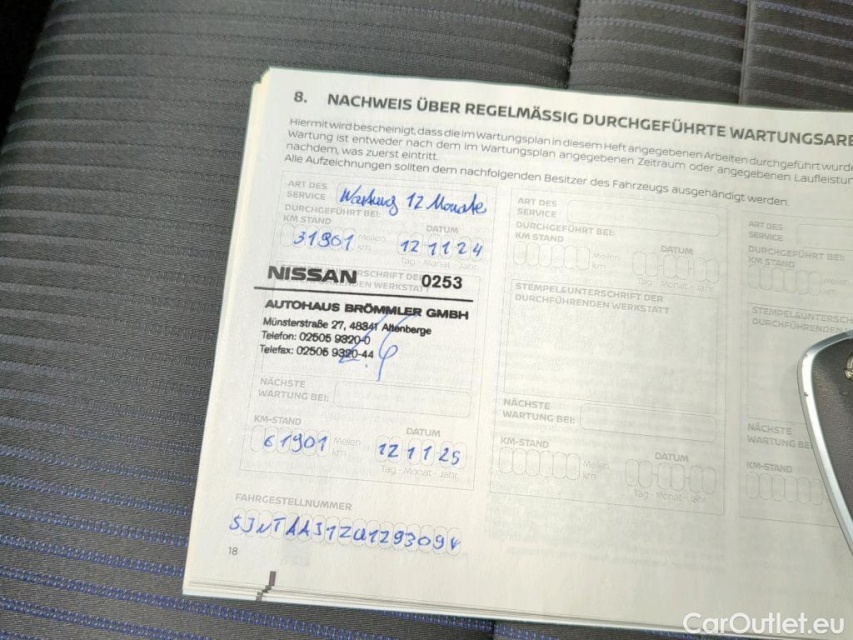 8. NACHWEIS ÜBER REGELMÄSSIG DURCHGEFÜHRTE WARTUNGSARE
Hiermit wird bescheinigt, dass die im Wartungsplan in diesem Heft angegebenen Arbeiten durchgeführt wurde
Wartung ist entweder nach dem im Wartungsplan angegebenen Zeitraum oder angegebenen Laufleistun
nachdem, was zuerst eintritt.
Alle Aufzeichnungen sollten dem nachfolgenden Besitzer des Fahrzeugs ausgehändigt werden.
ART DES
SERVICE Wartung 12 Monate
DURCHGEFÜHRT BEI:
KM STAND DATUM
31901 Meilen km 12 11 24
Tag - Monat - Jahr
NISSAN 0253
AUTOHAUS BRÖMMLER GMBH
Münsterstraße 27, 48341 Altenberge
Telefon: 02505 9320-0
Telefax: 02505 9320-44
NÄCHSTE
WARTUNG BEI:
KM-STAND DATUM
61901 Meilen km 12 11 25
Tag - Monat - Jahr
FAHRGESTELLNUMMER
18
ART DES
SERVICE
DURCHGEFÜHRT BEI:
KM STAND DATUM
Meilen km
Tag - Monat - Jahr
STEMPEL&UNTERSCHRIFT DER
DURCHFÜHRENDEN WERKSTATT
NÄCHSTE
WARTUNG BEI:
KM-STAND DATUM
Meilen km
Tag - Monat - Jahr
ART DES
SERVICE
DURCHGEFÜHRT
KM STAND
STEMPEL&UNTERSCH
DURCHFÜHRENDEN
NÄCHSTE
WARTUNG BEI
KM-STAND
CarOutlet.eu